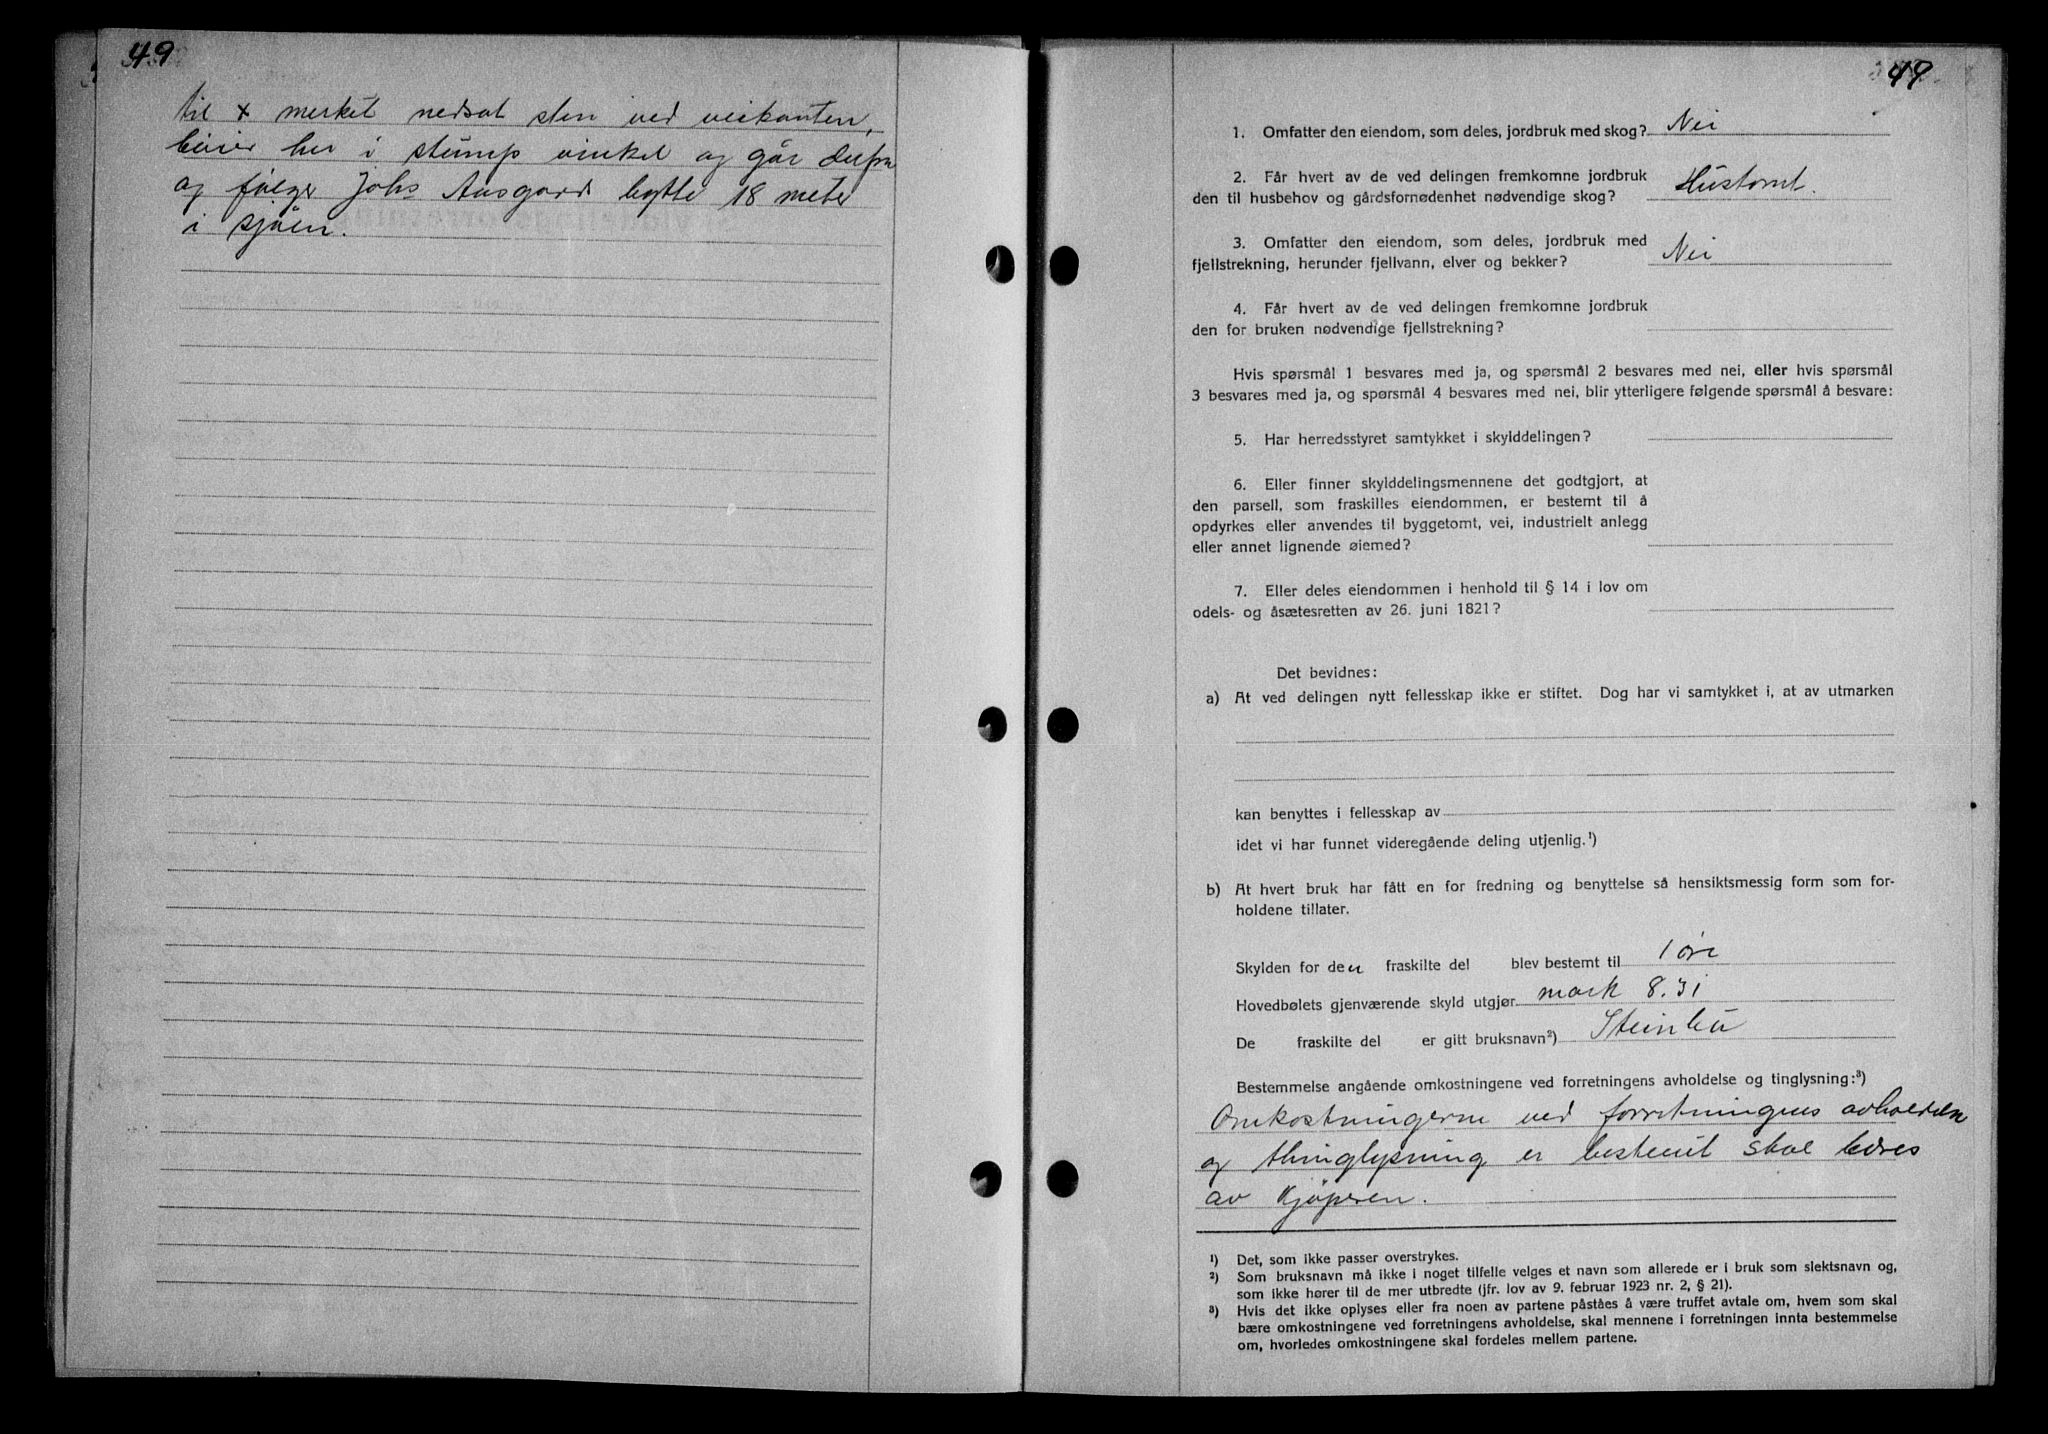 49
til x merket nedsat sten ved veikanten,
beier her i stump vinkel og går derfra
og følger Johs Aasgard bytte 18 meter
i sjøen.
49
1. Omfatter den eiendom, som deles, jordbruk med skog? Nei
2. Får hvert av de ved delingen fremkomne jordbruk
den til husbehov og gårdsfornødenhet nødvendige skog? Hustomt.
3. Omfatter den eiendom, som deles, jordbruk med
fjellstrekning, herunder fjellvann, elver og bekker? Nei
4. Får hvert av de ved delingen fremkomne jordbruk
den for bruken nødvendige fjellstrekning?
Hvis spørsmål 1 besvares med ja, og spørsmål 2 besvares med nei, eller hvis spørsmål
3 besvares med ja, og spørsmål 4 besvares med nei, blir ytterligere følgende spørsmål å besvare:
5. Har herredsstyret samtykket i skylddelingen?
6. Eller finner skylddelingsmennene det godtgjort, at
den parsell, som fraskilles eiendommen, er bestemt til å
opdyrkes eller anvendes til byggetomt, vei, industrielt anlegg
eller annet lignende øiemed?
7. Eller deles eiendommen i henhold til § 14 i lov om
odels- og åsætesretten av 26. juni 1821?
Det bevidnes:
a) At ved delingen nytt fellesskap ikke er stiftet. Dog har vi samtykket i, at av utmarken
kan benyttes i fellesskap av
idet vi har funnet videregående deling utjenlig.¹)
b) At hvert bruk har fått en for fredning og benyttelse så hensiktsmessig form som for-
holdene tillater.
Skylden for den fraskilte del blev bestemt til 1 øre
Hovedbølets gjenværende skyld utgjør mark 8.31
De fraskilte del er gitt bruksnavn²) Steinbu
Bestemmelse angående omkostningene ved forretningens avholdelse og tinglysning:³)
Omkostningerne ved forretningens avholdelse
og thinglysning er bestemt skal bæres
av kjøperen.
¹) Det, som ikke passer overstrykes.
²) Som bruksnavn må ikke i noget tilfelle velges et navn som allerede er i bruk som slektsnavn og,
som ikke hører til de mer utbredte (jfr. lov av 9. februar 1923 nr. 2, § 21).
³) Hvis det ikke oplyses eller fra noen av partene påståes å være truffet avtale om, hvem som skal
bære omkostningene ved forretningens avholdelse, skal mennene i forretningen innta bestemmelse
om, hvorledes omkostningene skal fordeles mellem partene.